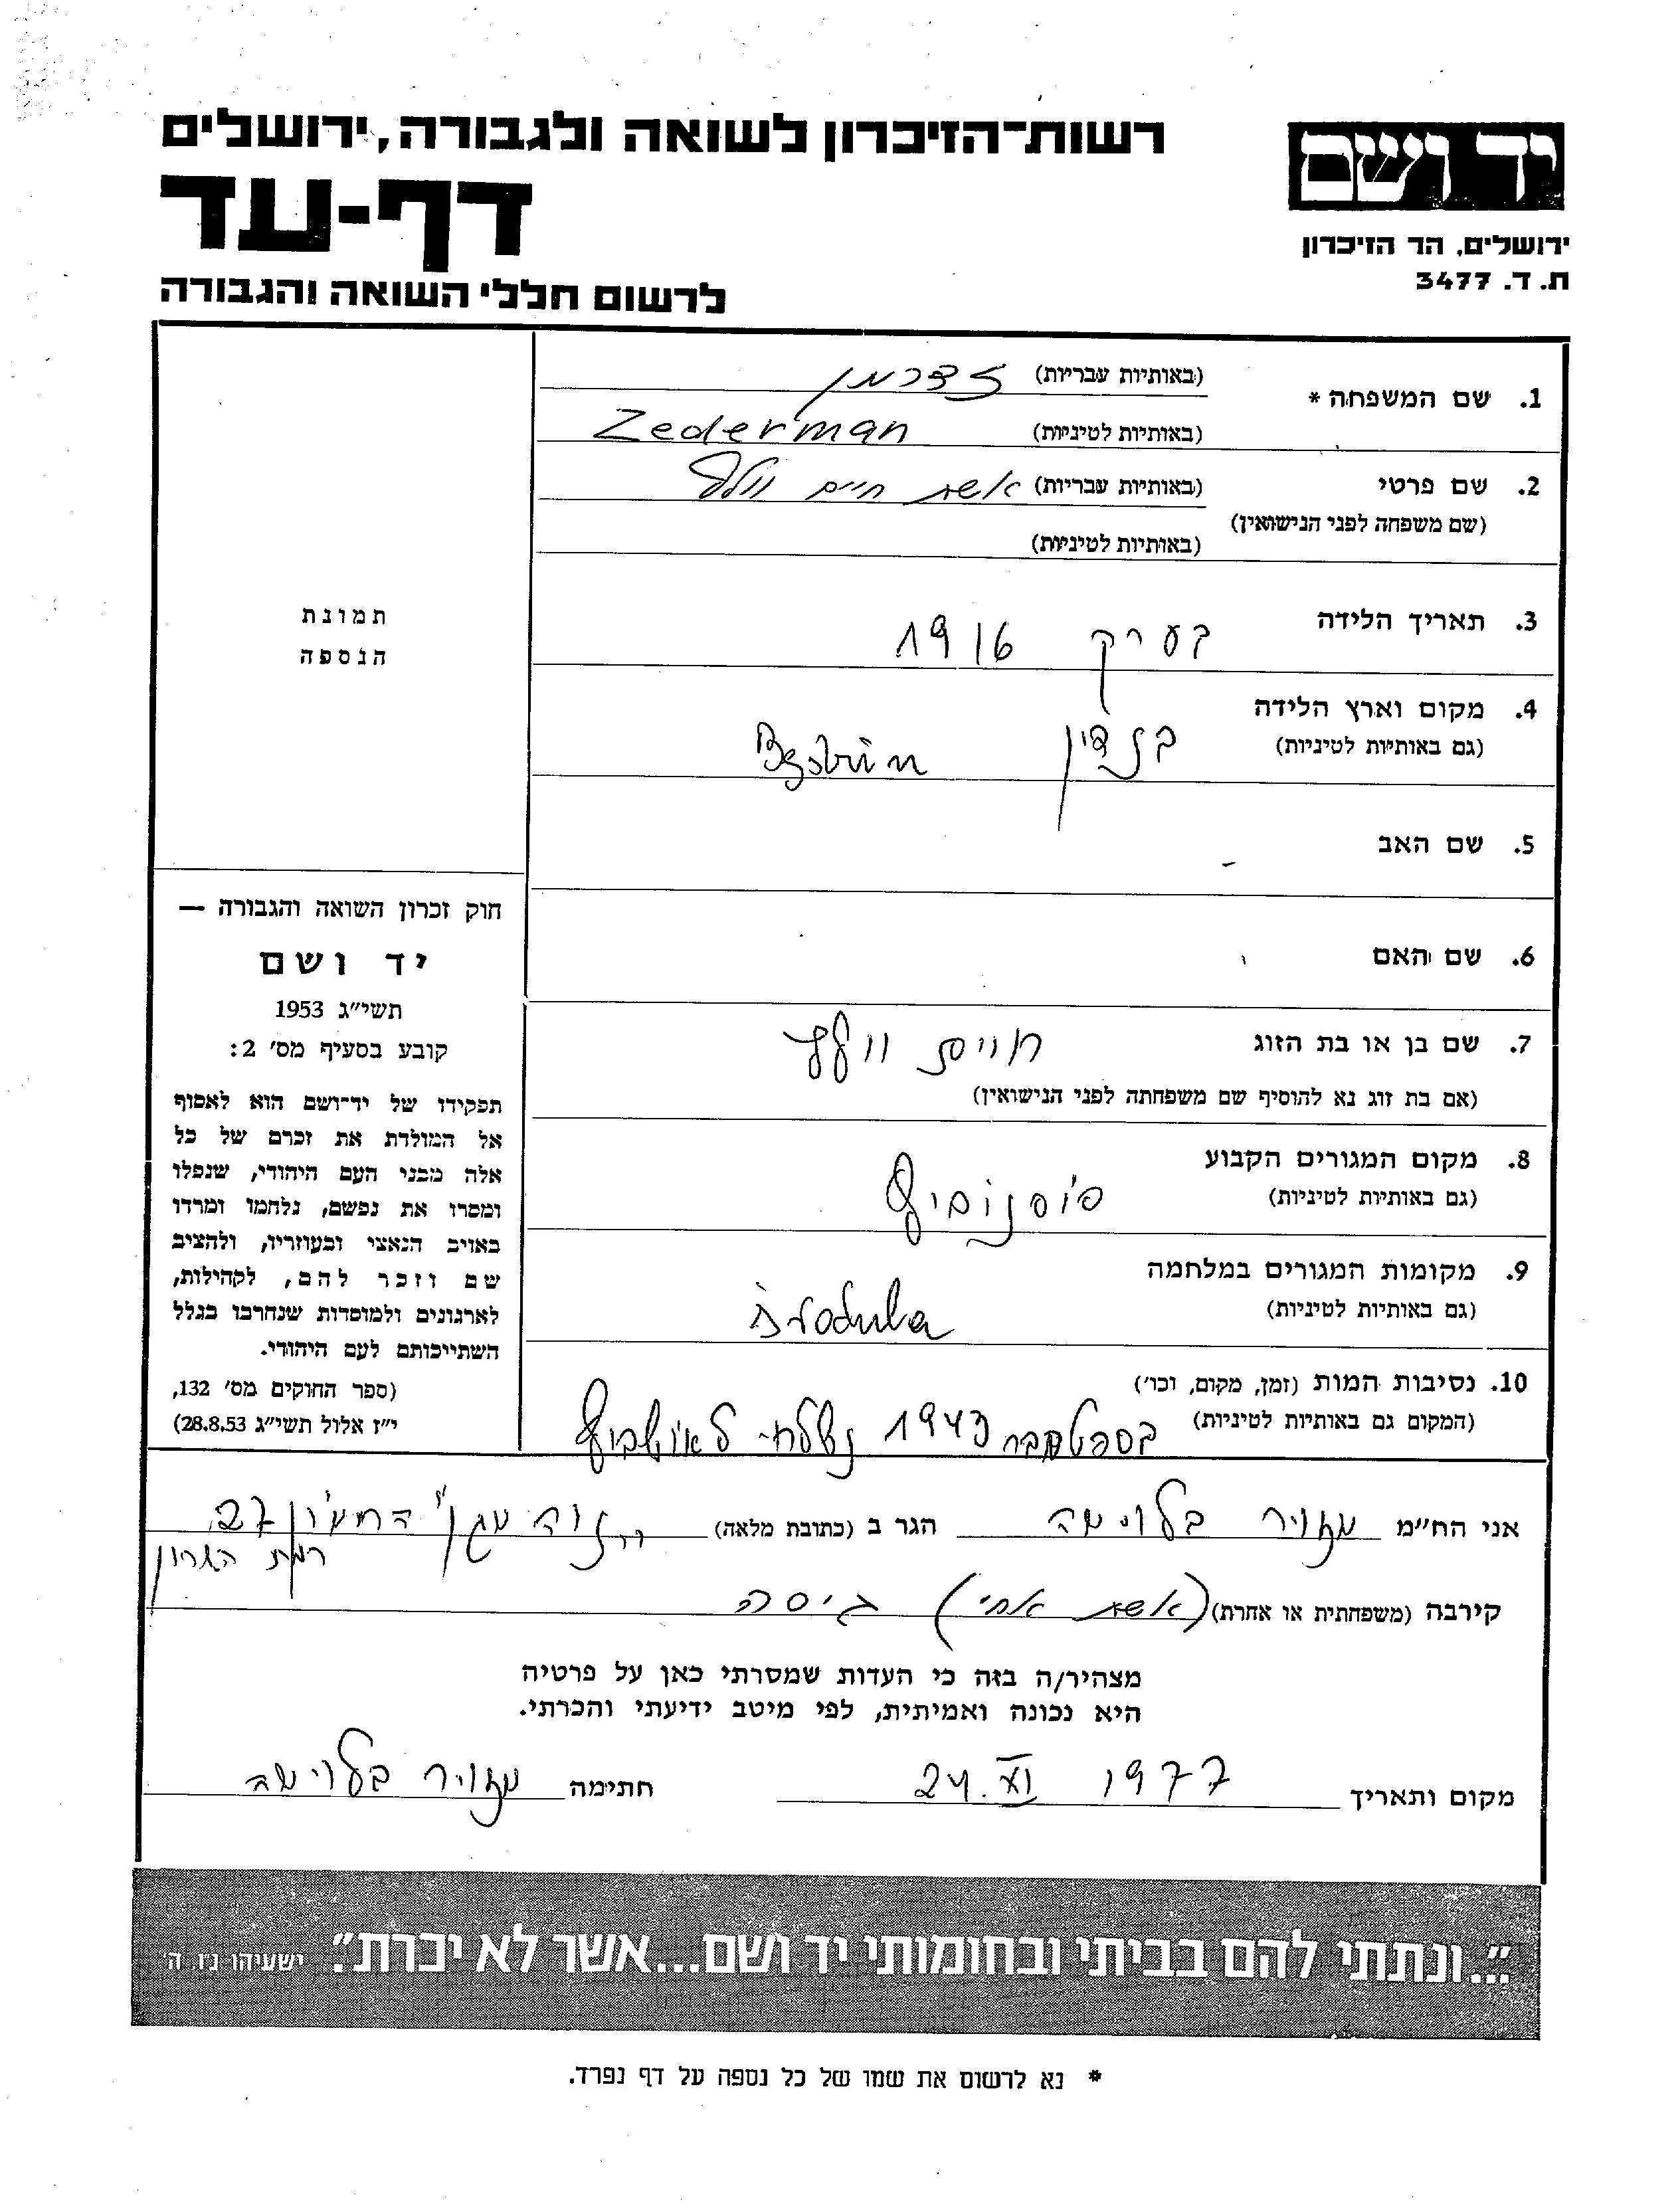 רשות־הזיכרון לשואה ולגבורה, ירושלים
דף-עד
לרשום חללי השואה והגבורה
יד ושם
ירושלים, הר הזיכרון
ת. ד. 3477
1. שם המשפחה *
(באותיות עבריות) זדרמן
(באותיות לטיניות) Zederman
2. שם פרטי (באותיות עבריות) אשת חיים וולף
(שם משפחה לפני הנישואין)
(באותיות לטיניות)
3. תאריך הלידה בערך 1916
4. מקום וארץ הלידה
(גם באותיות לטיניות) בנדין
5. שם האב -
6. שם האם
7. שם בן או בת הזוג חיים וולף
(אם בת זוג נא להוסיף שם משפחתה לפני הנישואין)
8. מקום המגורים הקבוע
(גם באותיות לטיניות) סוסנוביץ
9. מקומות המגורים במלחמה
(גם באותיות לטיניות) šrodula
10. נסיבות המות (זמן, מקום, וכו')
(המקום גם באותיות לטיניות) בספטמבר 1943 נשלחי לאושביץ
תמונת
הנספה
חוק זכרון השואה והגבורה —
יד ושם
תשי"ג 1953
קובע בסעיף מס' 2:
תפקידו של יד־ושם הוא לאסוף
אל המולדת את זכרם של כל
אלה מבני העם היהודי, שנפלו
ומסרו את נפשם, נלחמו ומרדו
באויב הנאצי ובעוזריו, ולהציב
שם וזכר להם, לקהילות,
לארגונים ולמוסדות שנחרבו בגלל
השתייכותם לעם היהודי.
(ספר החוקים מס' 132,
י"ז אלול תשי"ג 28.8.53)
אני הח"מ בלוימה הגר ב (כתובת מלאה) נוה מגן 27
רמת השרון
קירבה (משפחתית או אחרת) (אשת אחי) גיסה
מצהיר/ה בזה כי העדות שמסרתי כאן על פרטיה
היא נכונה ואמיתית, לפי מיטב ידיעתי והכרתי.
מקום ותאריך 24. XI 1977 חתימה בלוימה
"...ונתתי להם בביתי ובחומותי יד ושם...אשר לא יכרת". ישעיהו נ"ו ה'
* נא לרשום את שמו של כל נספה על דף נפרד.